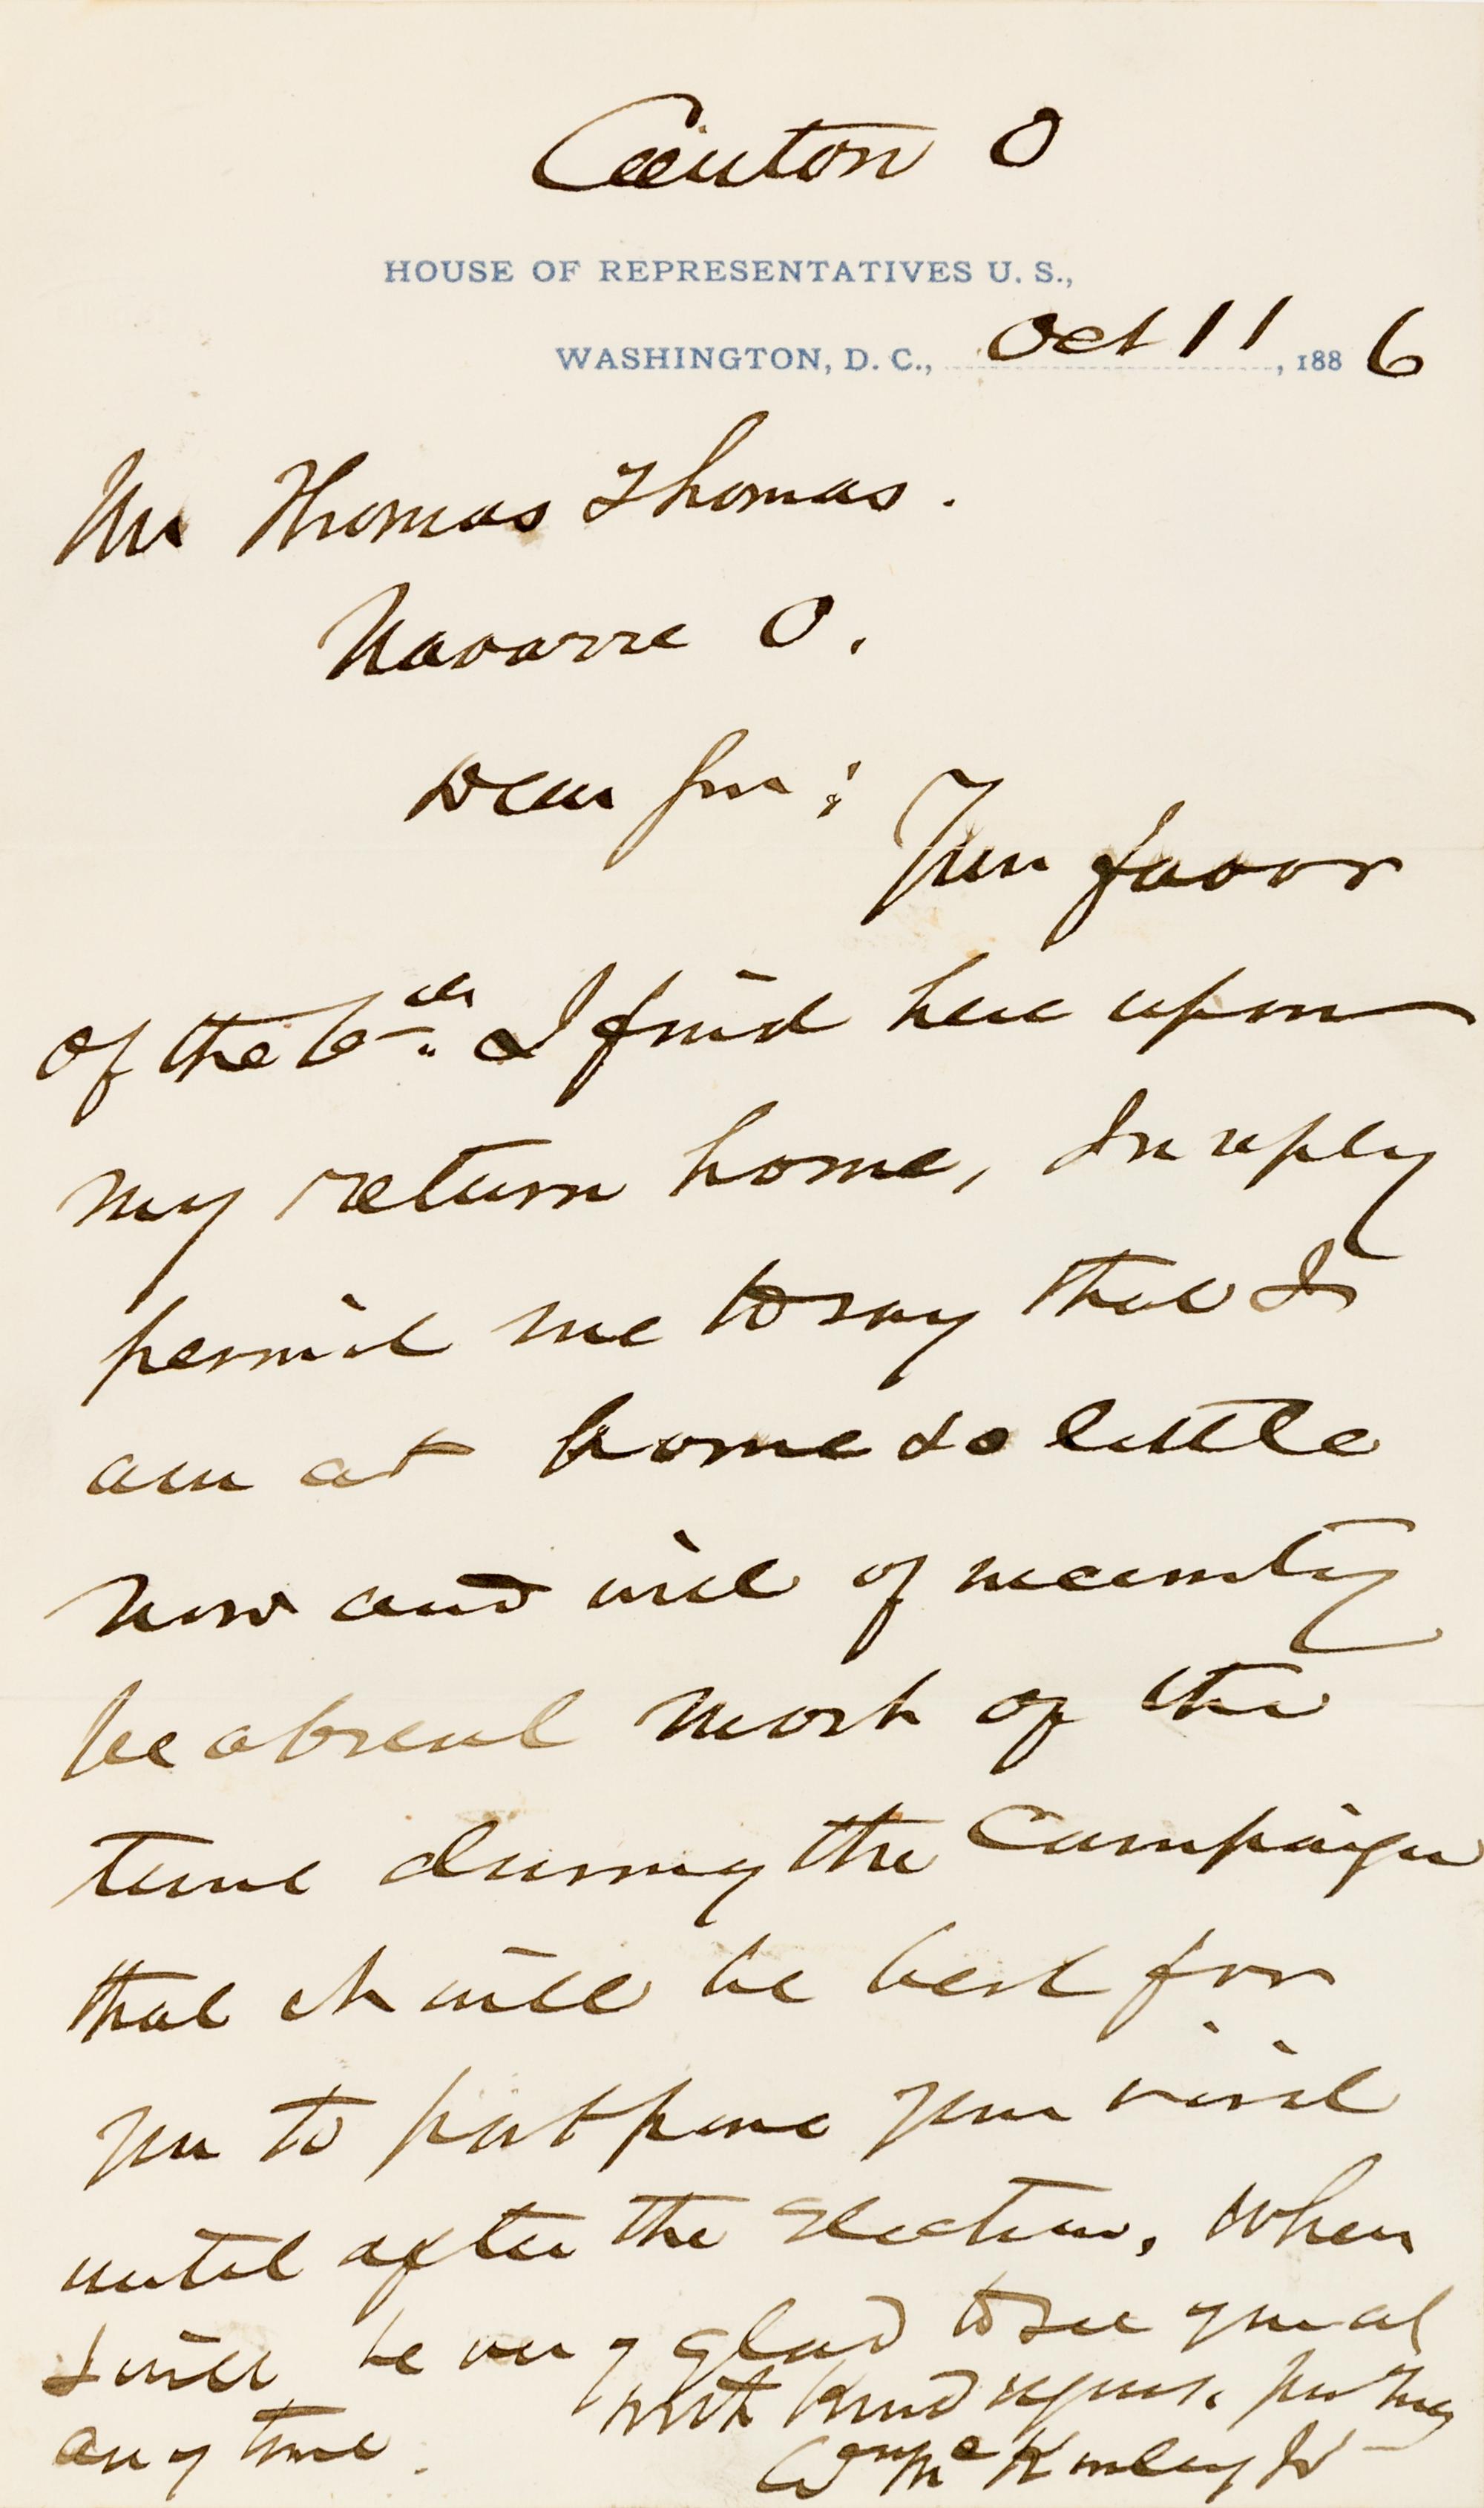 Canton O
HOUSE OF REPRESENTATIVES U. S.,
WASHINGTON, D. C., Oct 11, 1886
Mr Thomas Thomas.
Navarre O.
Dear Sir:
Your favor
of the 6th. I find here upon
my return home, In reply
permit me to say that I
am at home so little
now and will of necessity
be absent most of the
time during the Campaign
that it will be best for
you to postpone your visit
until after the Election, when
I will be very glad to see you at
any time.
With kind regards, yours truly
Wm McKinley Jr